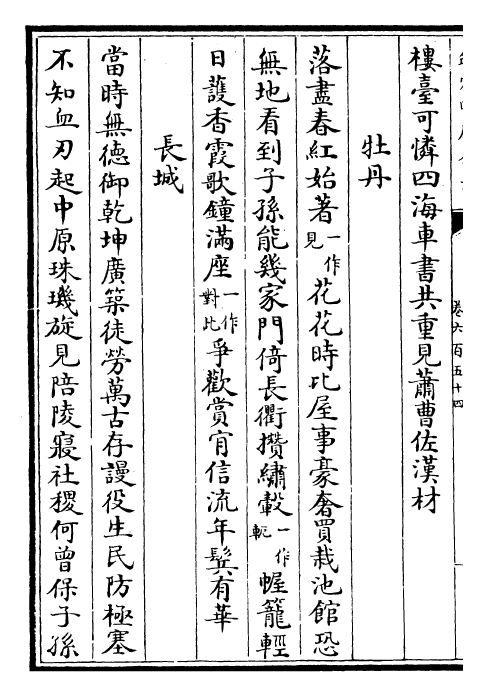 卷六百五十四
樓臺可憐四海車書共重見蕭曹佐漢材
牡丹
落盡春紅始著一作見花花時比屋事豪奢買栽池館恐
無地看到子孫能幾家門倚長衢攢繡轂一作軛幄籠輕
日護香霞歌鐘滿座一作對此爭歡賞肯信流年鬂有華
長城
當時無德御乾坤廣築徒勞萬古存謾役生民防極塞
不知血刃起中原珠璣旋見陪陵寢社稷何曾保子孫